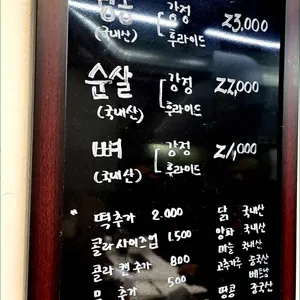 강정 23,000
(국내산) 후라이드
순살 강정 22,000
(국내산) 후라이드
뼈 강정 21,000
(국내산) 후라이드
떡추가 2.000
콜라 사이즈업 1.500
콜라 캔 추가 800
추가 500
닭 국내산
양파 국내산
마늘 국내산
고추가루 중국산
베트남
땅콩 중국산